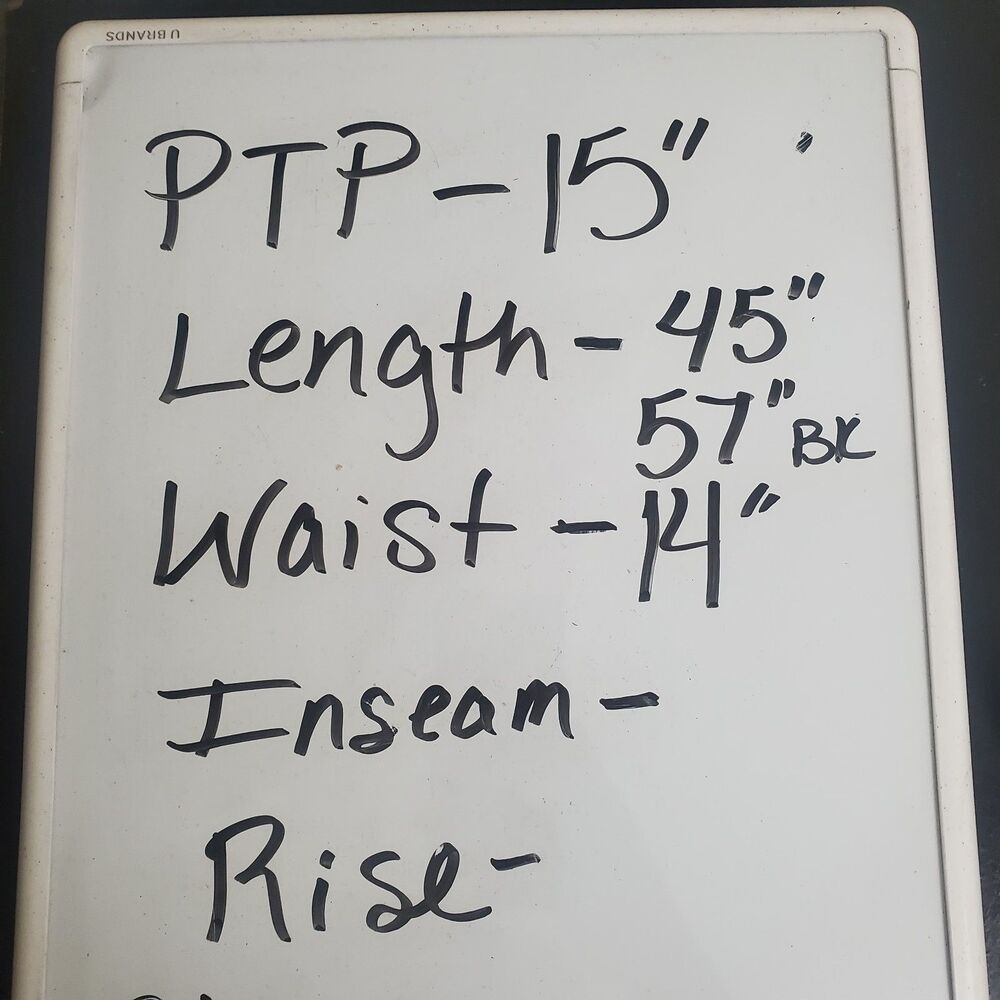 U BRANDS
PTP - 15"
Length - 45"
57" BK
Waist - 14"
Inseam -
Rise -